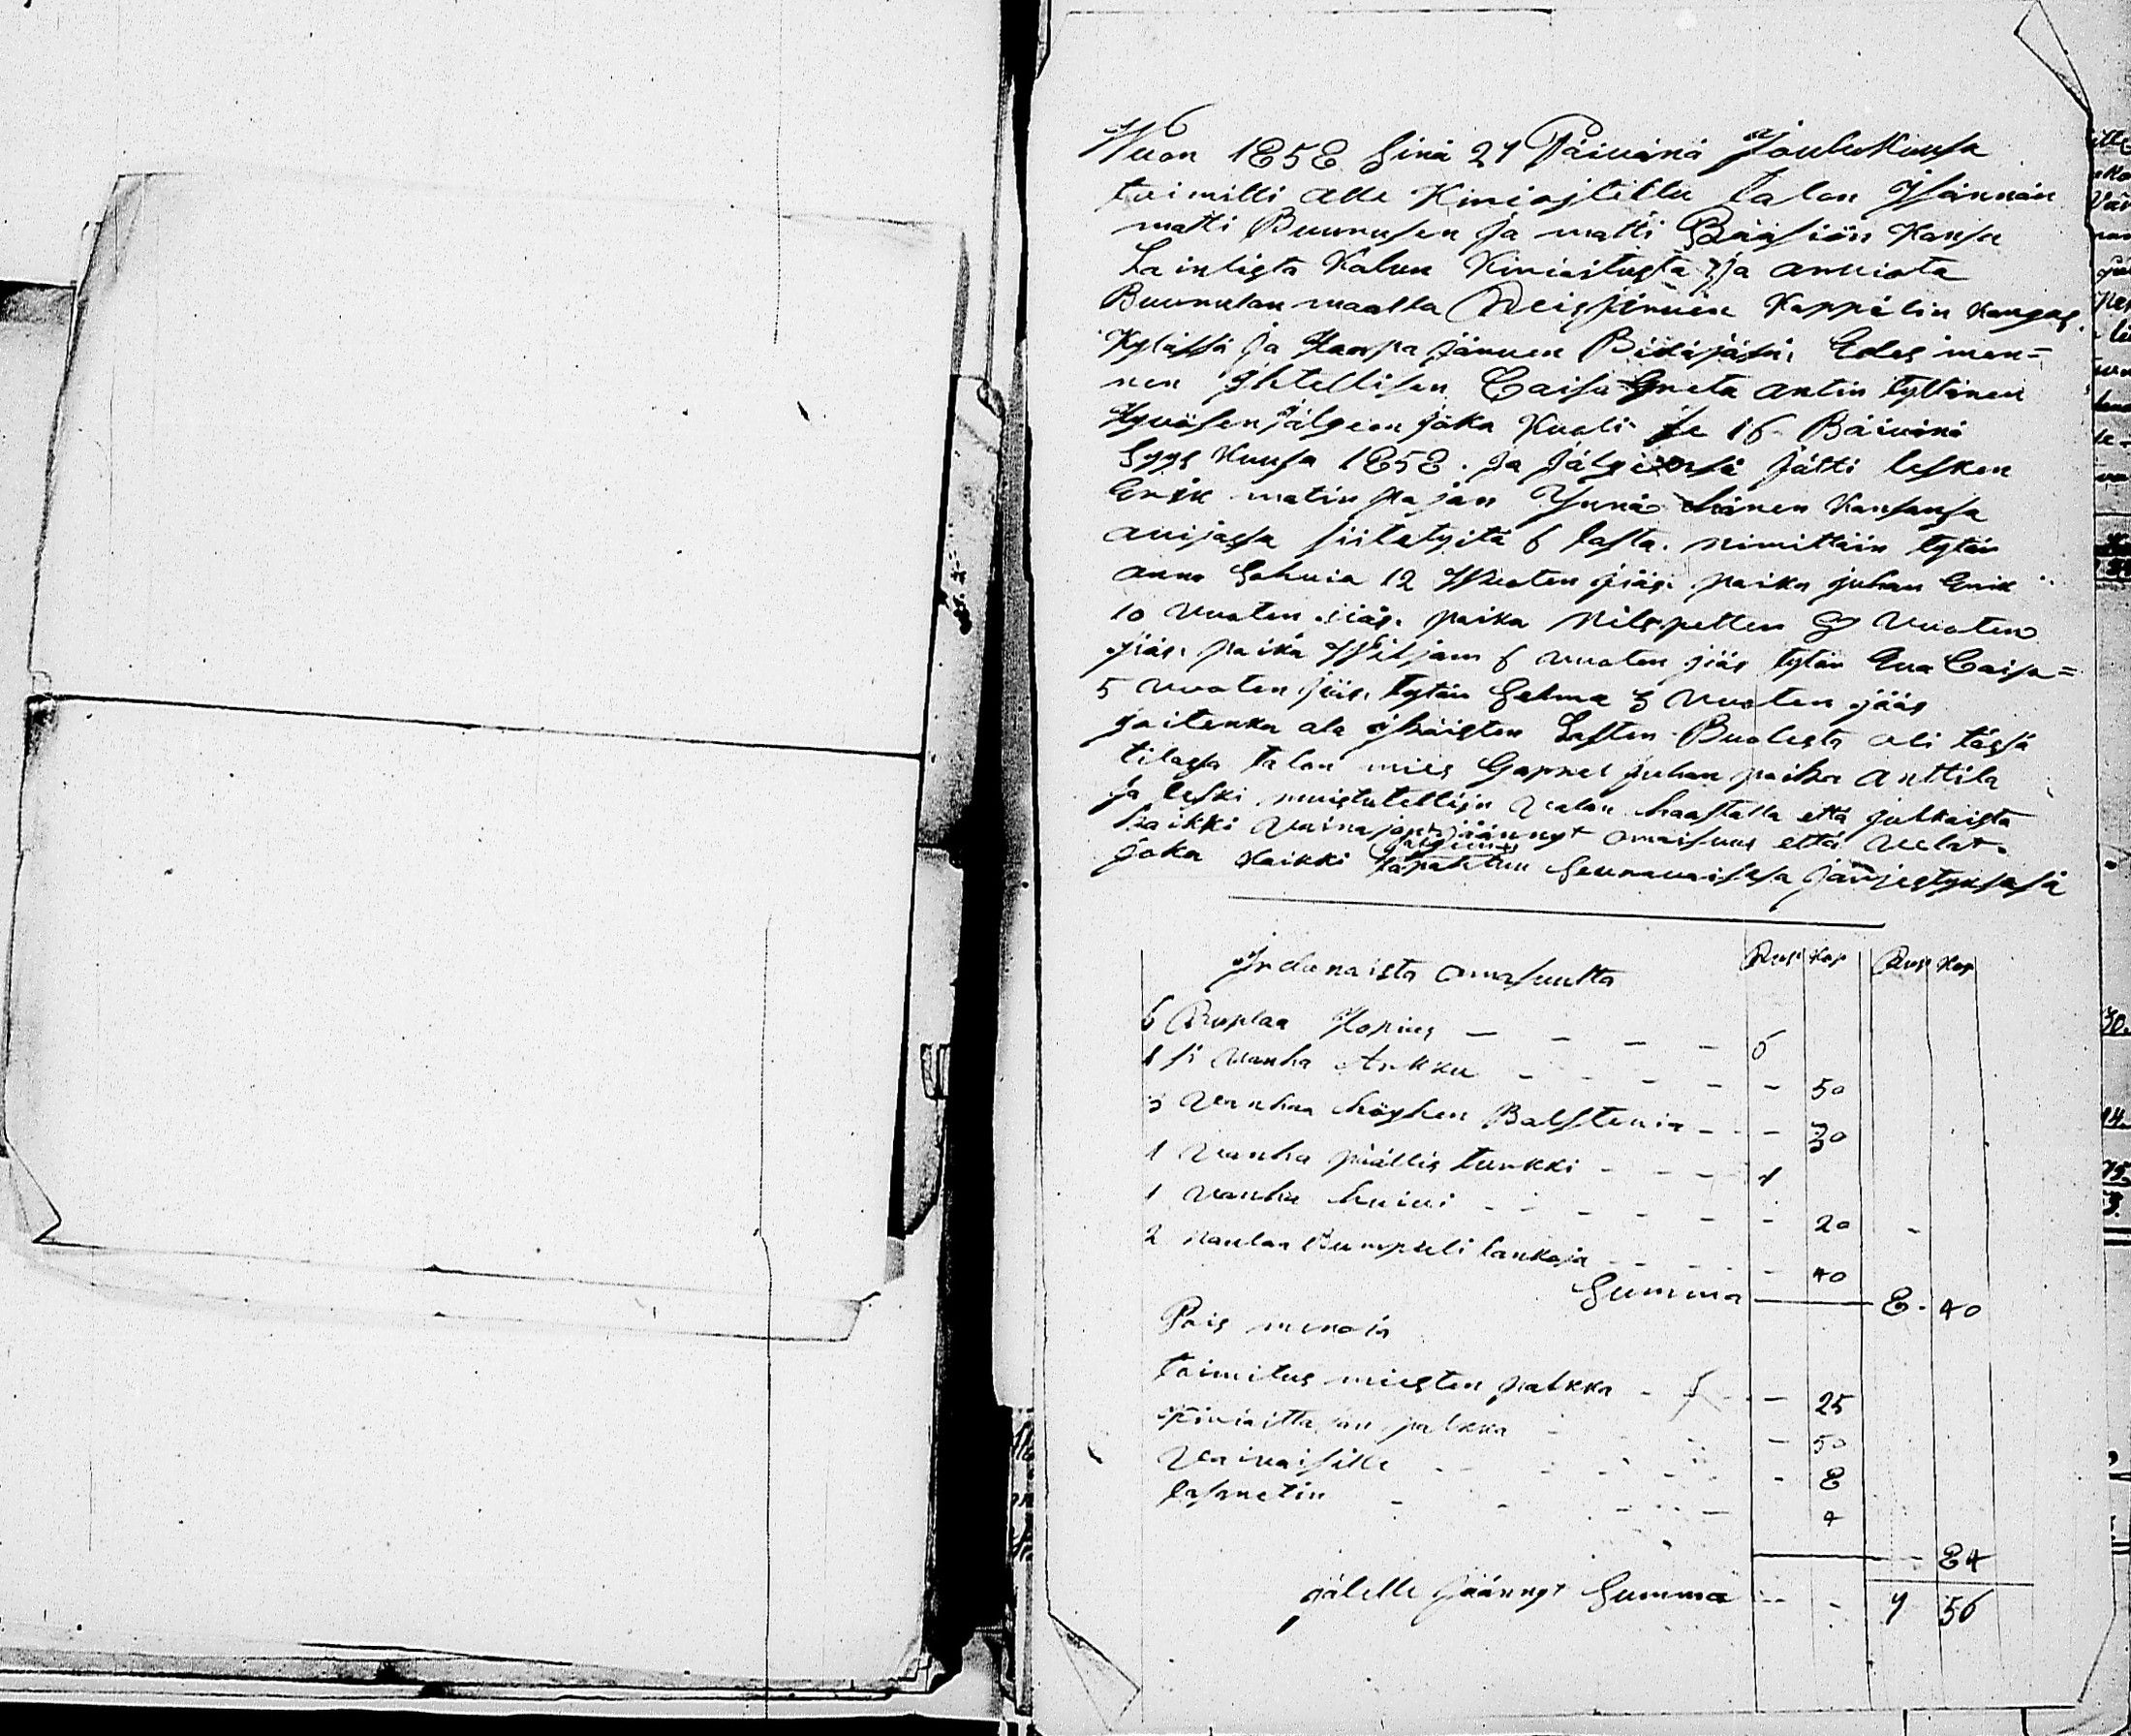 6
Wuon 1858 Sinä 27 Päivänä Joulukuusa
toimitti alle Kirioitettu talon Isännän
matti Buurusen ja matti Bääsiön Kansa
Lainlista kalun Kirioitusta ja arviota
Buurulan maalla Reisjärven Kappelin kangas
Kylässä ja Haapajärven Bitäjäsä, Edes men=
nen ihtellisen Caisa Greta antin tyttären
Hyväsen jälgeen joka Kuoli se 16 Bäivänä
Syys Kuusa 1858. ja jälgeensä jätti lesken
Erik matin pajan Ynnä hänen Kansansa
avijossa siitetyitä 6 lasta. nimittäin tytär
anna Sohvia 12 Wuoten jiäs. paika juhan Erik
10 Vuoten jiäs. paika Nils petter 8 Vuoten
jiäs. paika Wiljam 6 vuoten jiäs tytär Eva Caisa=
5 vuoten jiäs. tytär Selma 3 Vuoten jääs
joitenka ala ihäisten Lasten Buolesta oli tässä
tilassa talon mies Gapriel juhan paika Anttila
ja leski muistutettiin valan haastalla että julkaista
kaikki Vainajan jäännyt omaisuus että velat.
jälgeens
joka kaikki tapahtuu Seuravaisesa järjestyksesä
Irdanaista omasuutta
Rup Kop Rup Kop
6 Ruplaa Hopias — — — — 6
1 si vanha Arkku - - - - - 50
3 Vanhaa höyhen Balstenia - - - 30
1 Vanha päällis turkki - - - 1
1 vanha huivi - - - - - - 20
2 naulaa Bumpuli lankoja - - - - 40
Summa — 8. 40
Pois menoja
toimitus miesten palkka - - - 25
Kirioittajan palkka - - - 50
Vaivaisille - - - - - 8
lasaretin - - - - 4
- 84
jälelle jäännyt Summa - - 7 56